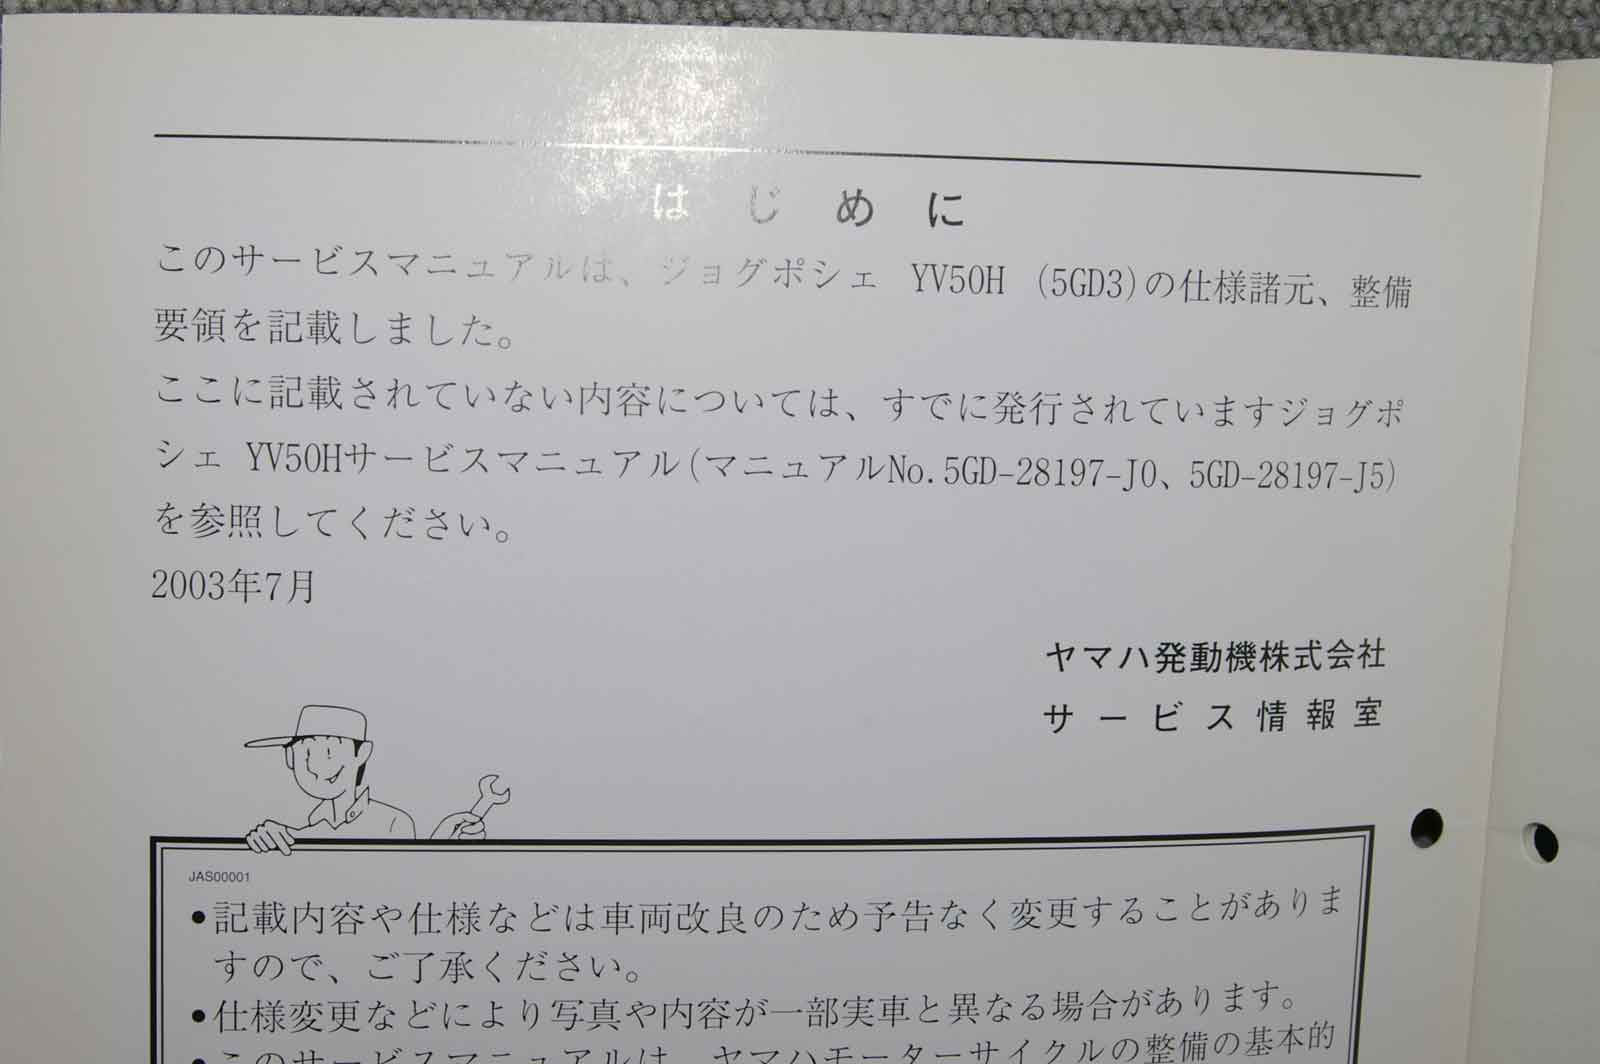 はじめに
このサービスマニュアルは、ジョグポシェ YV50H (5GD3)の仕様諸元、整備
要領を記載しました。
ここに記載されていない内容については、すでに発行されていますジョグポ
シェ YV50Hサービスマニュアル(マニュアルNo.5GD-28197-J0、5GD-28197-J5)
を参照してください。
2003年7月
ヤマハ発動機株式会社
サービス情報室
JAS00001
●記載内容や仕様などは車両改良のため予告なく変更することがありま
すので、ご了承ください。
●仕様変更などにより写真や内容が一部実車と異なる場合があります。
●このサービスマニュアルは、ヤマハモーターサイクルの整備の基本的